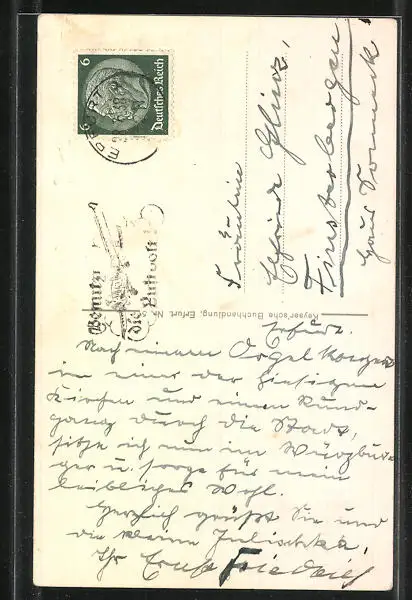 6 6
Deutsches Reich
ERFURT
Benutzt
die Luftpost
Fräulein
Finsterbergen
Haus
Keyser'sche Buchhandlung, Erfurt. Nr.
Erfurt.
Nach einem Orgelkonzert
in einer der hiesigen
Kirchen und einem Rund-
gang durch die Stadt,
sitze ich nun im Würzbur-
ger u. sorge für mein
leibliches Wohl.
Herzlich grüßt Sie und
die kleine
Ihr Ernst Friedrich